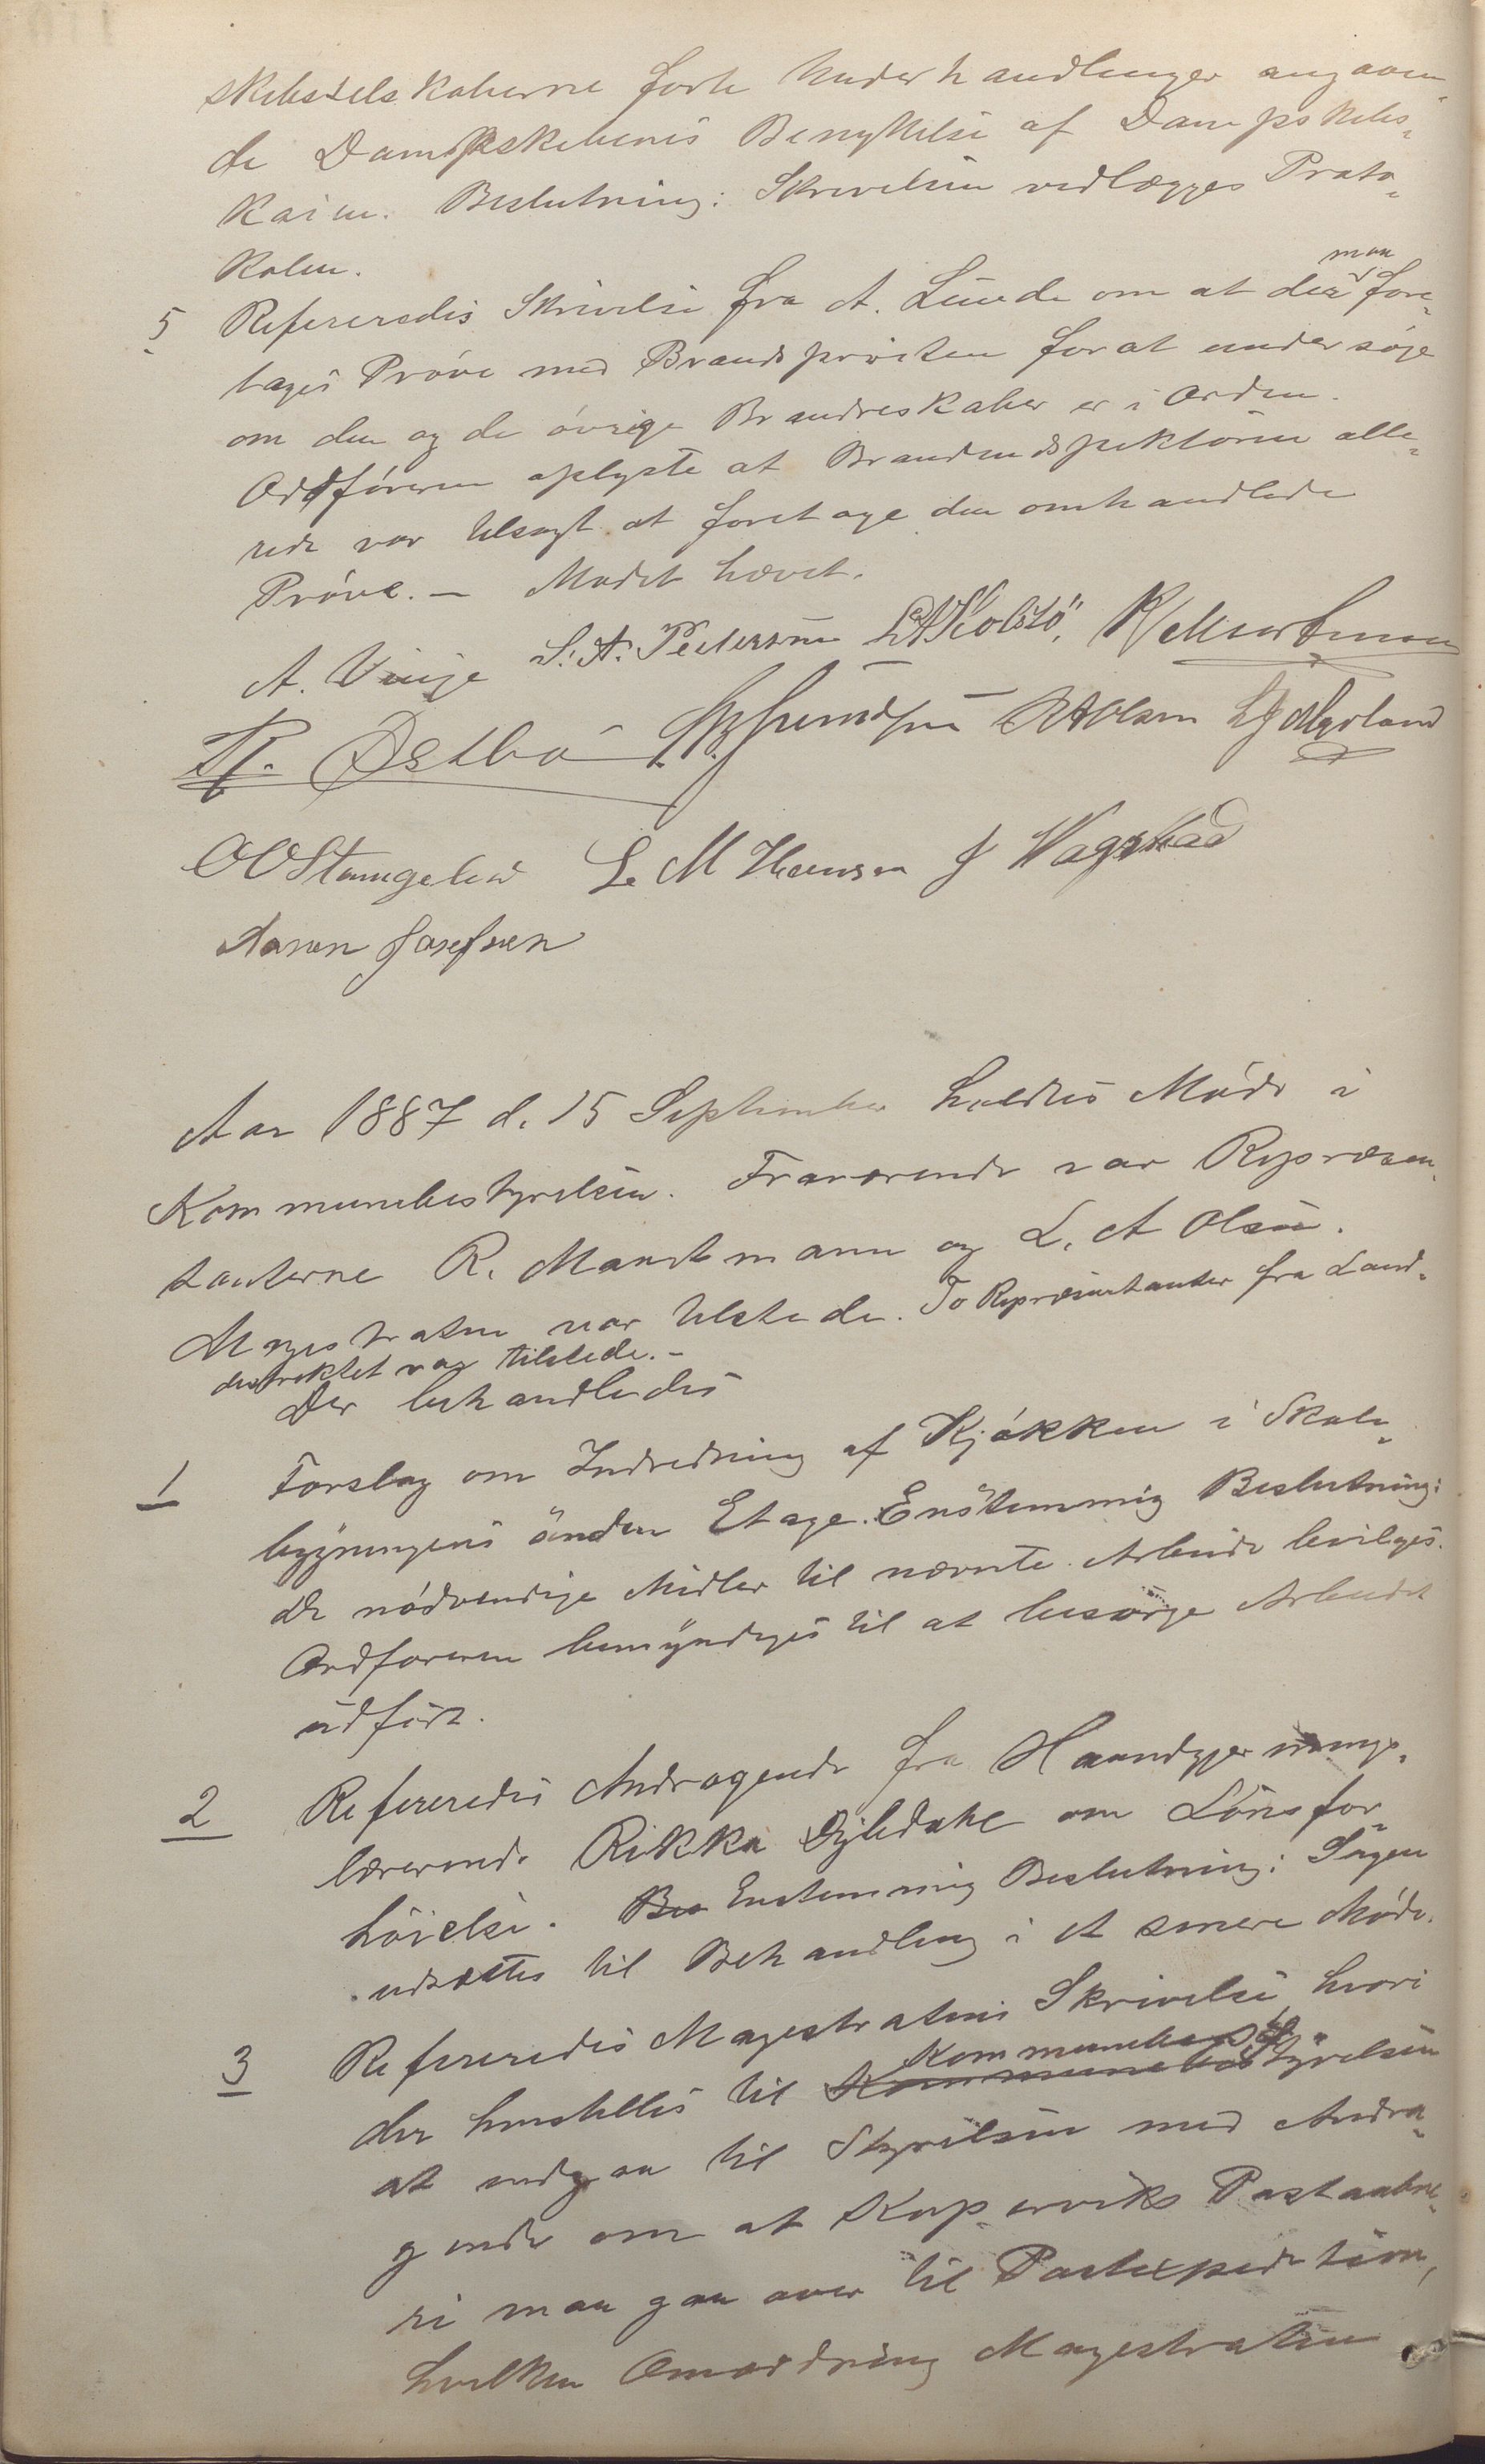 skibsselskaberne förte Underhandlinger angaaen-
de Dampskibenes Benyttelse af Dampskibs-
kaien. Beslutning: Skrivelsen vedlægges Proto-
kolen.
5 Refereredes Skrivelse fra A. Lunde om at der maa fore-
tages Pröve med Brandspröiten forat undersöge
om den og de övrige Brandreskaber er i Orden.
Ordföreren oplyste at Brandinspektören alle-
rede var tilsagt at foretage den omhandlede
Pröve. - Mødet hævet.
A. Vinje S. A. Pedersen Kolstö R Maurtmann
Østbö L A Olsen Myrland
O O Stangeland L. M. Hansen J Vagstad
Aanen Josefsen
Aar 1887 d. 15 September holdtes Möde i
Kommunebestyrelsen. Fraværende var Repræsen-
tanterne R. Maurtmann og L. A Olsen.
Magistraten var tilstede. To Repræsentanter fra Land-
distriktet var tilstede. -
Der behandledes
1 Forslag om Indredning af Kjökken i Skole-
bygningens anden Etage. Enstemmig Beslutning:
De nödvendige Midler til nævnte Arbeide bevilges.
Ordföreren bemyndiges til at besörge Arbeidet
udfört.
2 Refereredes Andragende fra Haandgjernings-
lærerinde Rikka Dybdahl om Lönsfor-
höielse. Bes Enstemmig Beslutning: Sagen
udsættes til Behandling i et senere Möde.
3 Refereredes Magestratens Skrivelse hvori
der henstilles til Kommunebestyrelsen
at indgaa til Styrelsen med Andra-
gende om at Kopervik's Postaabne-
ri maa gaa over til Postexpedition,
hvilken Omordning Magestraten